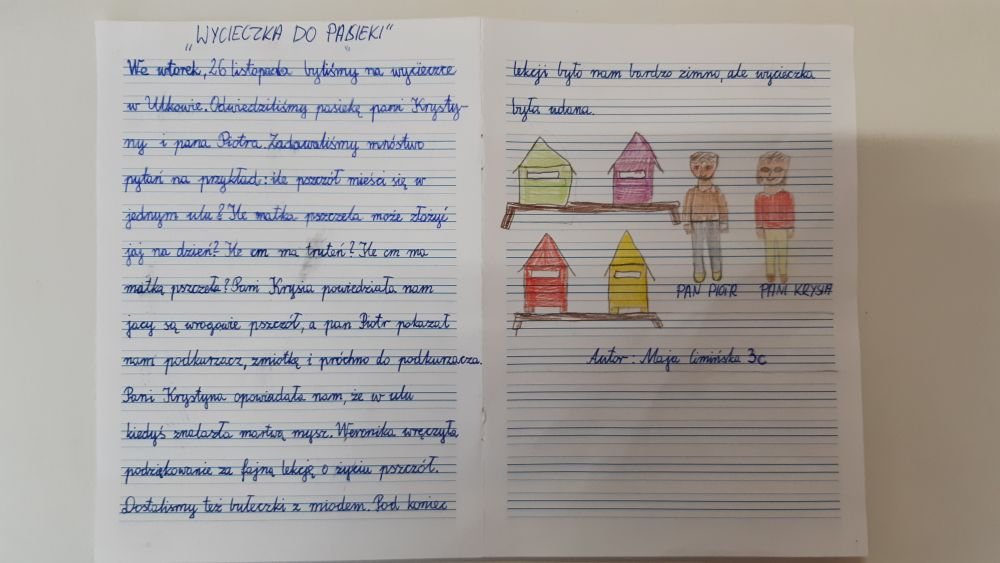 „WYCIECZKA DO PASIEKI"
We wtorek, 26 listopada byliśmy na wycieczce
w Ulkowie. Odwiedziliśmy pasiekę pani Krysty-
ny i pana Piotra. Zadawaliśmy mnóstwo
pytań na przykład: ile pszczół mieści się w
jednym ulu? Ile matka pszczela może złożyć
jaj na dzień? Ile cm ma truteń? Ile cm ma
matka pszczela? Pani Krysia powiedziała nam
jacy są wrogowie pszczół, a pan Piotr pokazał
nam podkurzacz, zmiotkę i próchno do podkurzacza.
Pani Krystyna opowiadała nam, że w ulu
kiedyś znalazła martwą mysz. Weronika wręczyła
podziękowanie za fajną lekcję o życiu pszczół.
Dostaliśmy też bułeczki z miodem. Pod koniec
lekcji było nam bardzo zimno, ale wycieczka
była udana.
PAN PIOTR PANI KRYSIA
Autor: Maja Limińska 3c